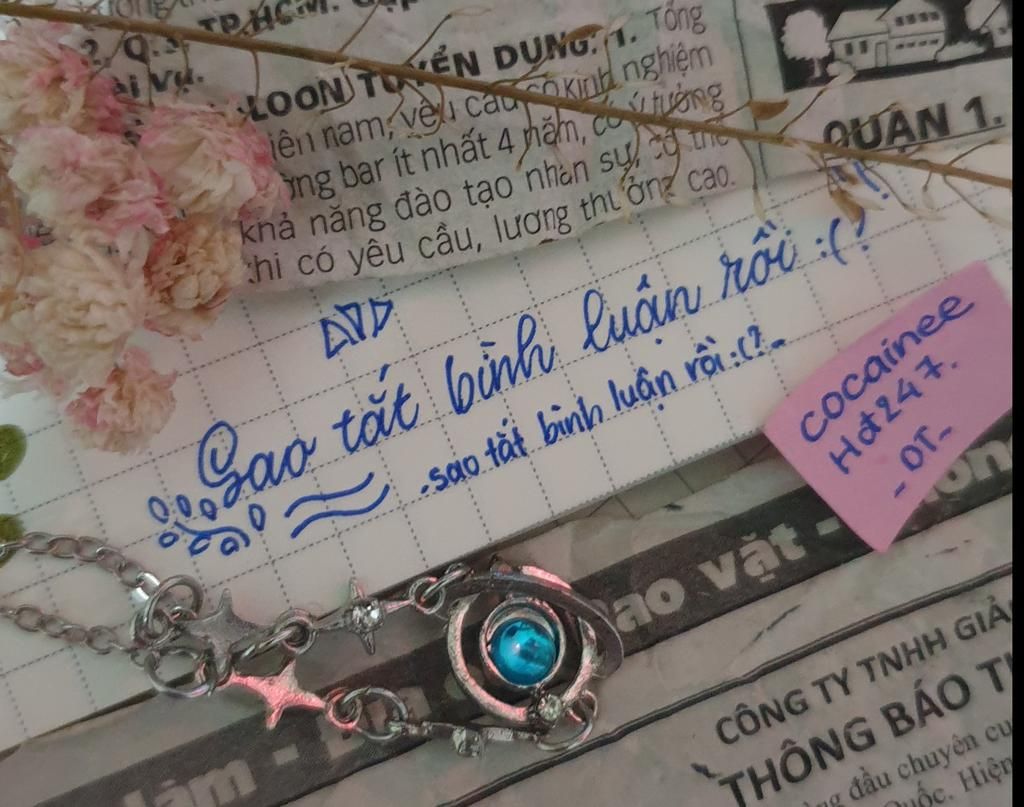 TP.HCM.
2, Q.3
LOON TUYỂN DỤNG: 1. Tổng
nam, yêu cầu có kinh nghiệm
bar ít nhất 4 năm, có ý tưởng
khả năng đào tạo nhân sự, có thể
khi có yêu cầu, lương thưởng cao.
QUẬN 1.
Sao tắt bình luận rồi :(?
.sao tắt bình luận rồi :(?
cocainee
Hđ247.
- OT -
ao vặt -
CÔNG TY TNHH GIẢ
THÔNG BÁO T
đầu chuyên cu
Hiện